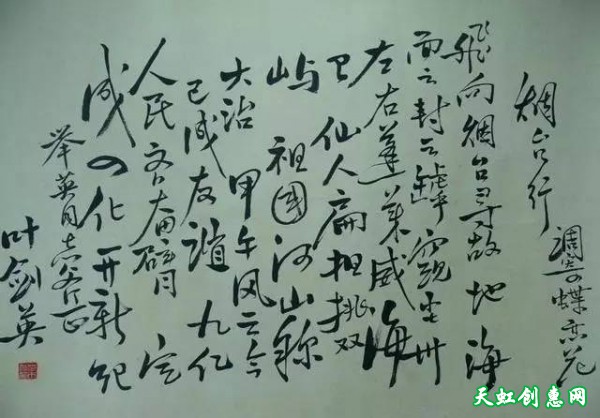 烟台行 调寄蝶恋花
飞向烟台寻故地 海
面云封云罅窥
左右蓬莱威海
卫 仙人扁担挑双
屿 祖國河山称
大治 甲午风云今
已成友谊 九亿
人民齐奋臂 定
成四化开新纪
举英同志斧正
叶剑英
天虹创惠网